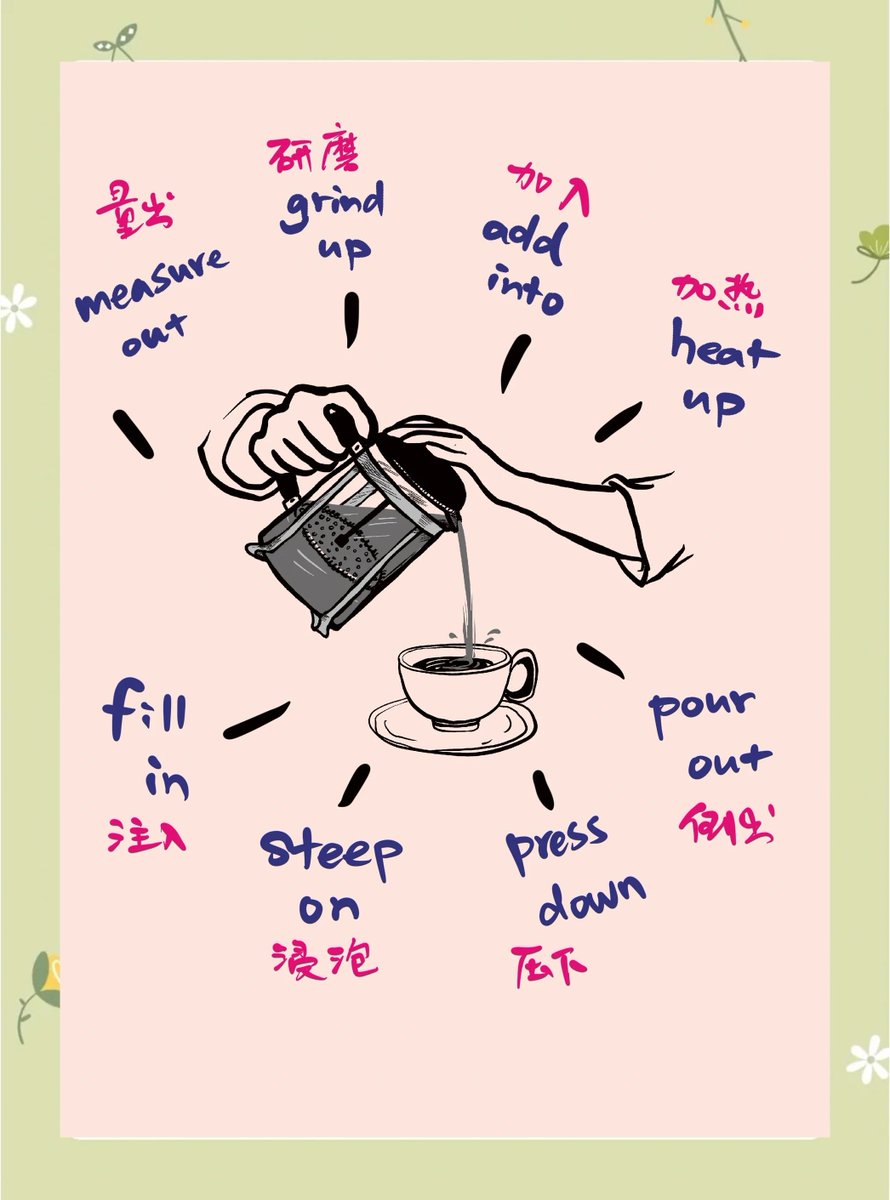 量出
measure
out
研磨
grind
up
加入
add
into
加热
heat
up
fill
in
注入
steep
on
浸泡
press
down
压下
pour
out
倒出